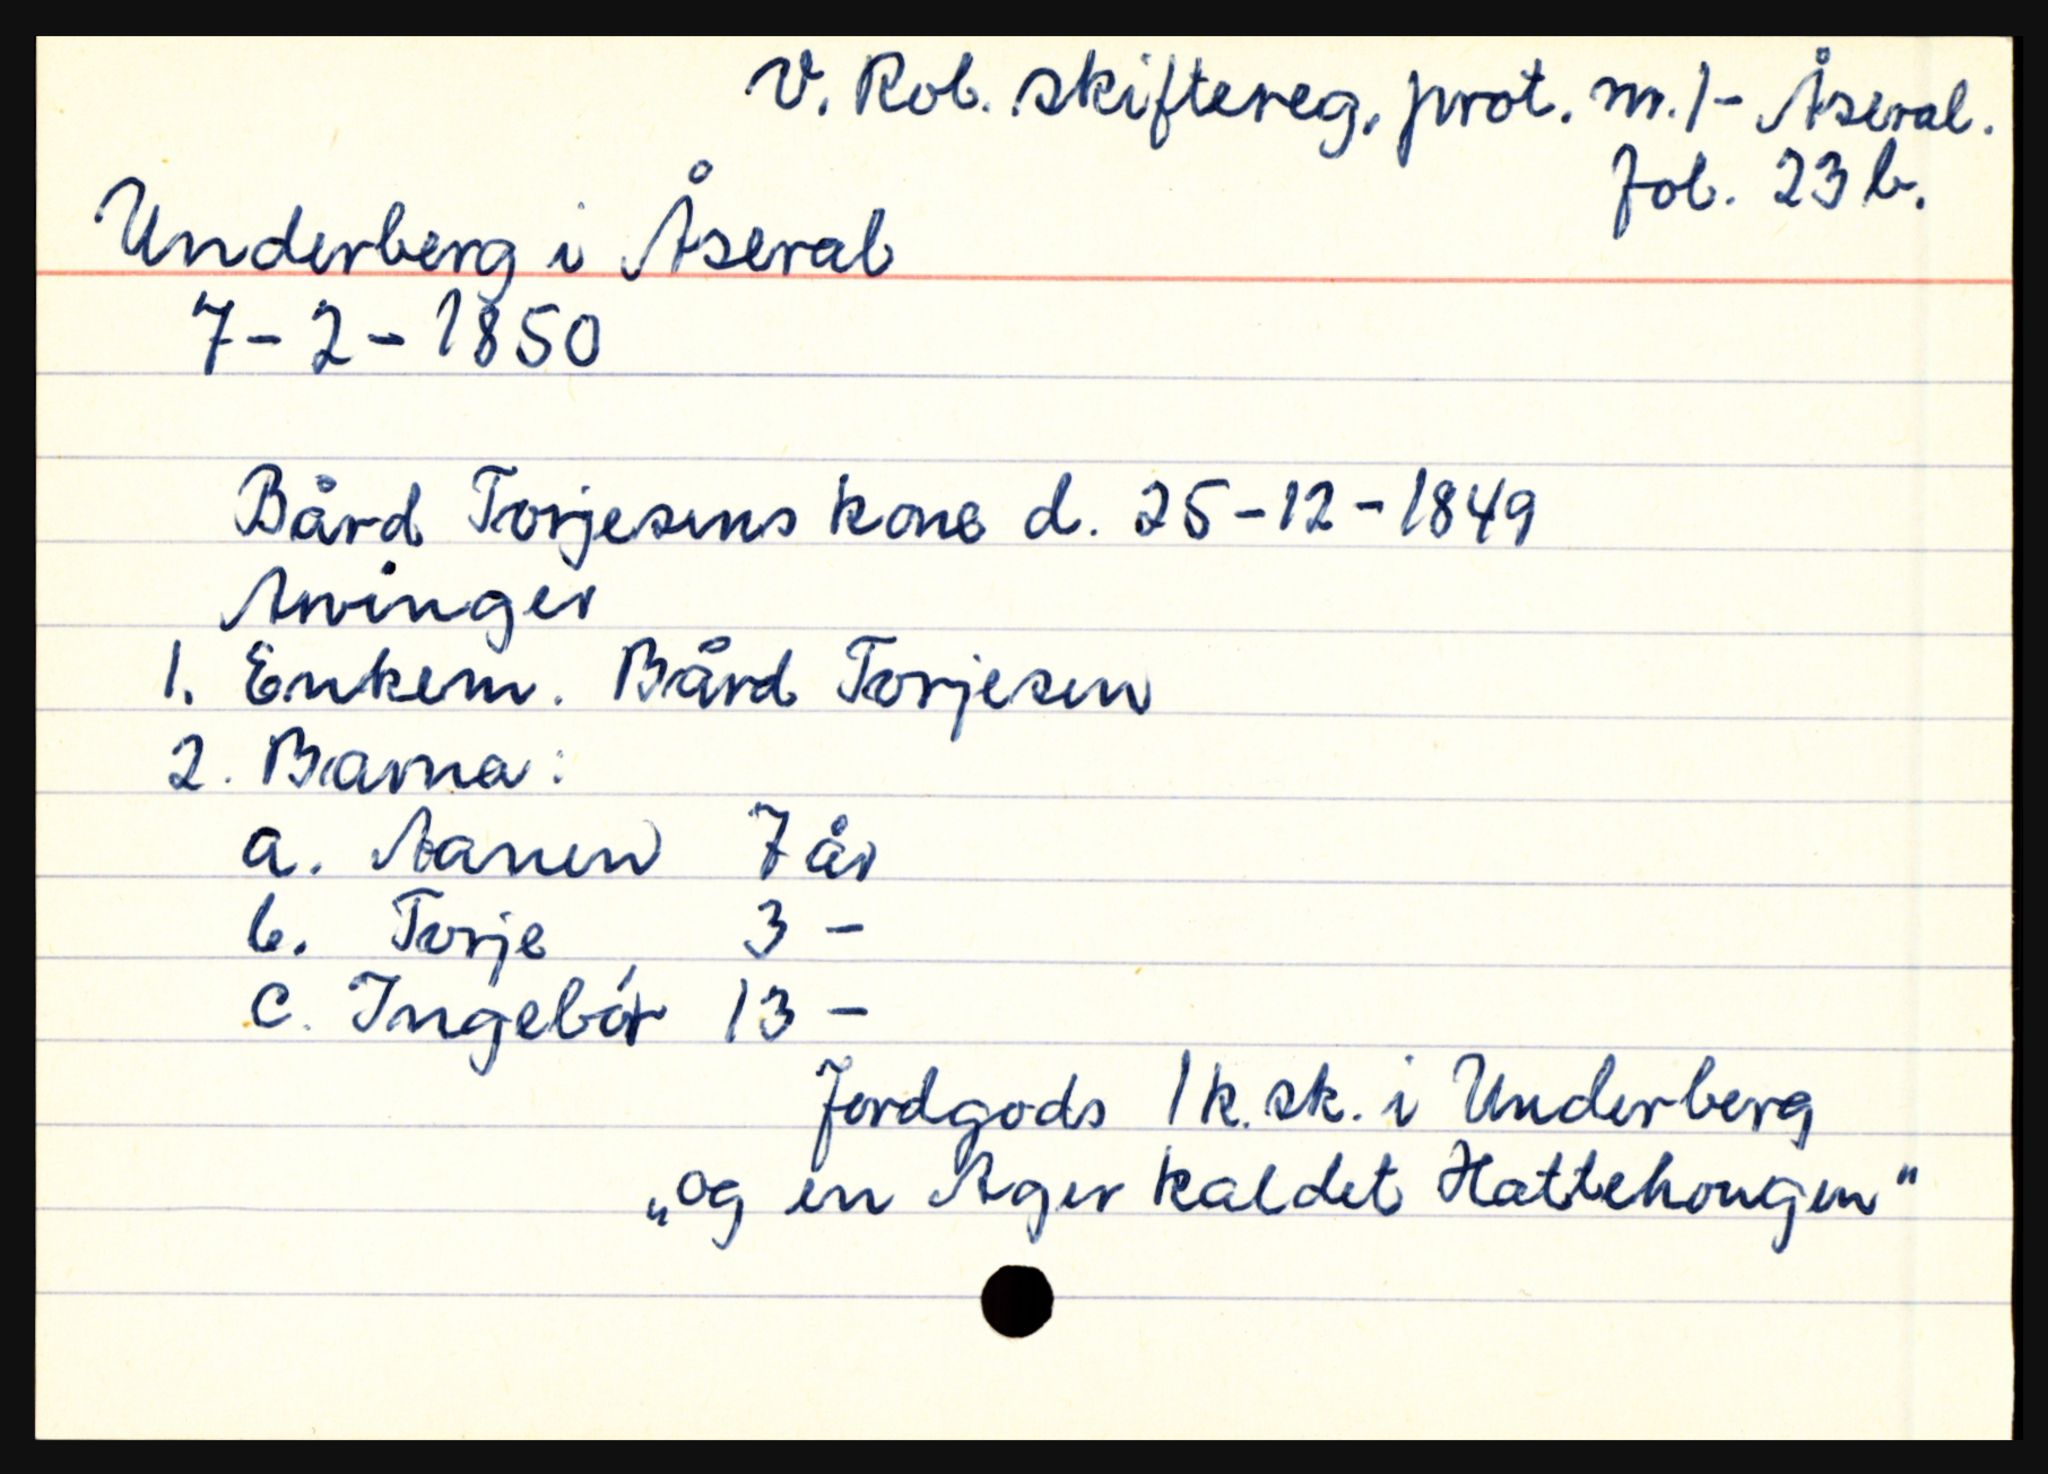 V. Rob. skiftereg. prot. nr. 1 - Åseral.
fol. 23 b.
Underberg i Åseral
7-2-1850
Bård Torjesens kone d. 25-12-1849
Arvinger
1. Enkem. Bård Torjesen
2. Barna:
a. Aanen 7 år
b. Torje 3 -
c. Ingebór 13 -
Jordgods 1 k. sk. i Underberg
„og en Ager kaldet Hattehougen"